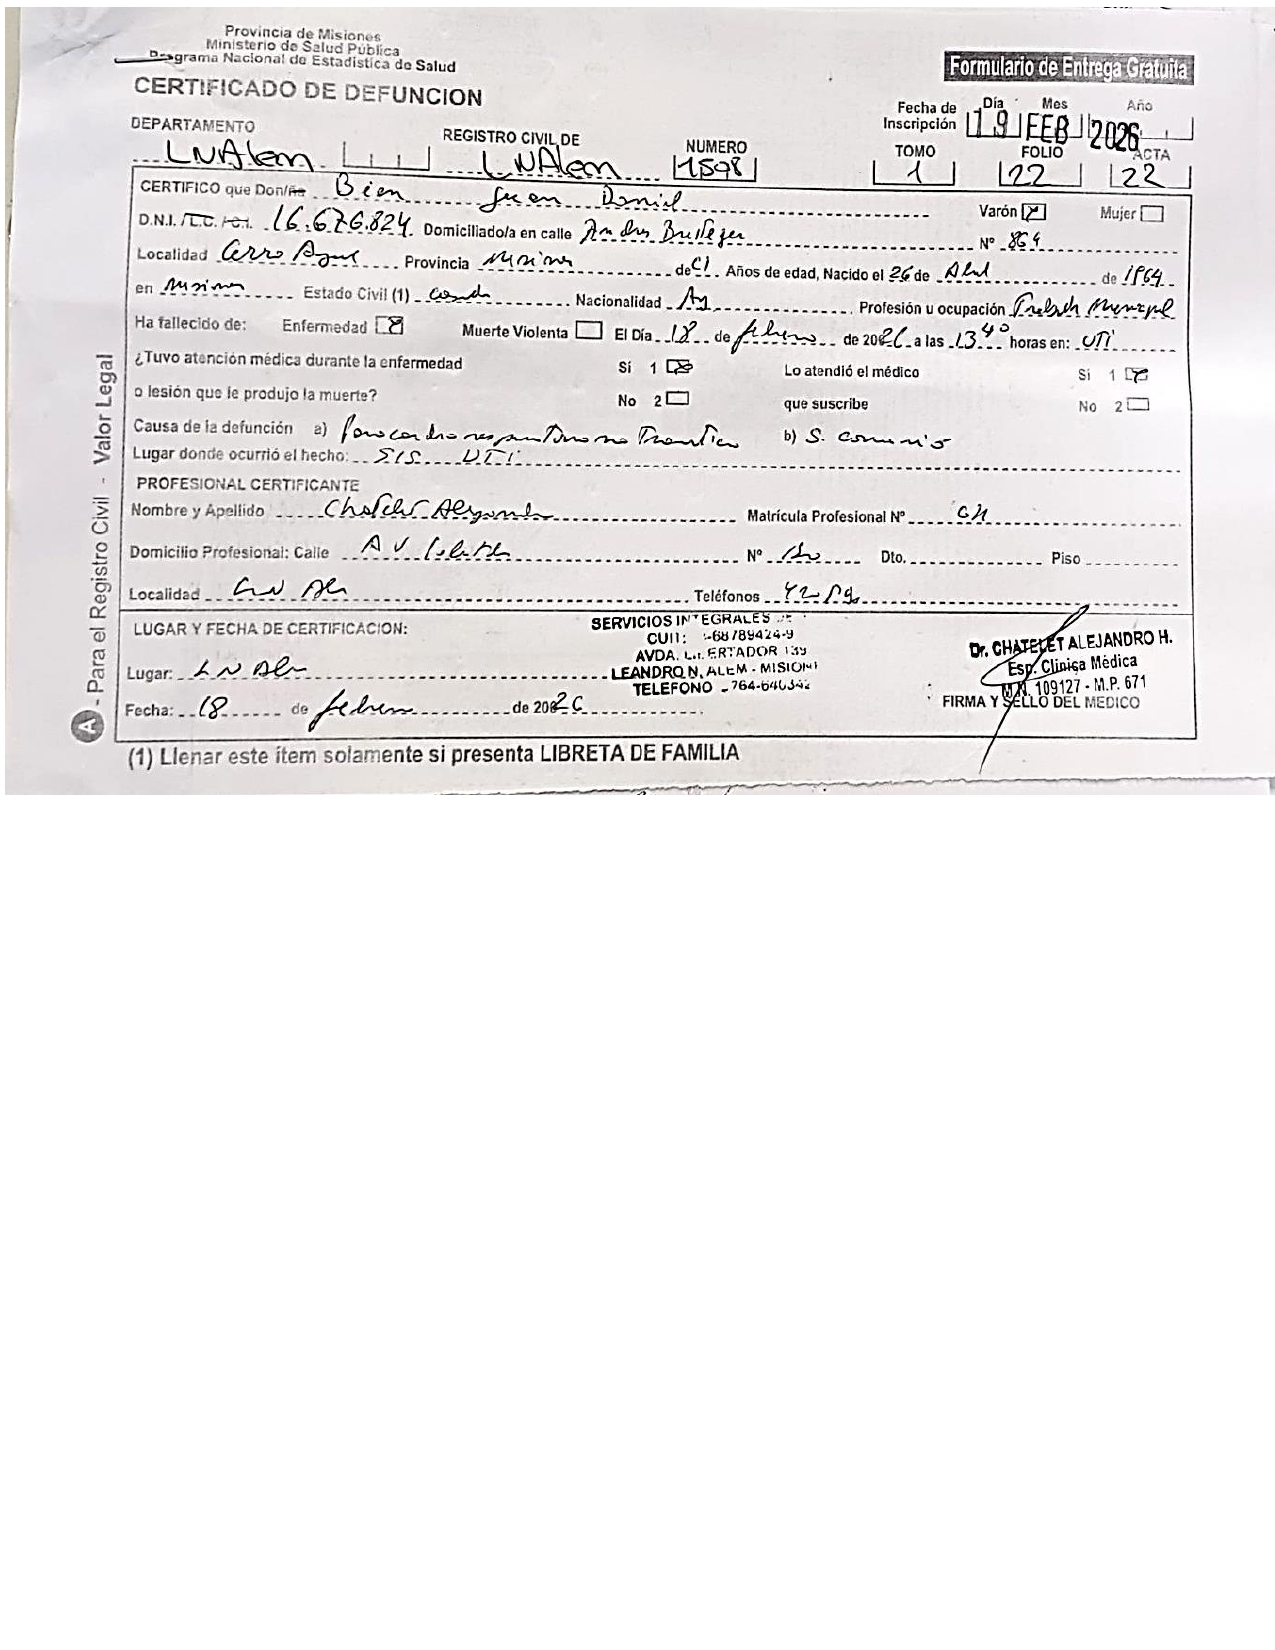 Provincia de Misiones
Ministerio de Salud Pública
Programa Nacional de Estadística de Salud
CERTIFICADO DE DEFUNCION
Formulario de Entrega Gratuita
Fecha de Inscripción Día 19 Mes FEB Año 2026
DEPARTAMENTO LNAlem REGISTRO CIVIL DE LNAlem NUMERO 1598 TOMO 1 FOLIO 22 ACTA 22
CERTIFICO que Don/ña Bien Juan Daniel Varón Mujer
D.N.I. /L.C. 16.676.824 Domiciliado/a en calle Nº 864
Localidad Cerro Azul Provincia Misiones de 61 Años de edad, Nacido el 26 de Abril de 1964
en Misiones Estado Civil (1) Nacionalidad Ag Profesión u ocupación
Ha fallecido de: Enfermedad Muerte Violenta El Día 18 de febrero de 2026 a las 13 40 horas en: UTI
¿Tuvo atención médica durante la enfermedad Sí 1 Lo atendió el médico Si 1
o lesión que le produjo la muerte? No 2 que suscribe No 2
Causa de la defunción a) Paro cardio respiratorio no Traumático b) S.
Lugar donde ocurrió el hecho: SIS UTI
PROFESIONAL CERTIFICANTE
Nombre y Apellido Chatelet Alejandro Matrícula Profesional Nº
Domicilio Profesional: Calle AV Nº Dto. Piso
Localidad LN Alem Teléfonos
LUGAR Y FECHA DE CERTIFICACION:
Lugar: LN Alem
Fecha: 18 de febrero de 2026
SERVICIOS INTEGRALES
CUIT: -68789424-9
AVDA. LIBERTADOR 139
LEANDRO N. ALEM - MISIONES
TELEFONO
Dr. CHATELET ALEJANDRO H.
Esp. Clinica Médica
M.N. 109127 - M.P. 671
FIRMA Y SELLO DEL MEDICO
(1) Llenar este ítem solamente si presenta LIBRETA DE FAMILIA
A - Para el Registro Civil - Valor Legal